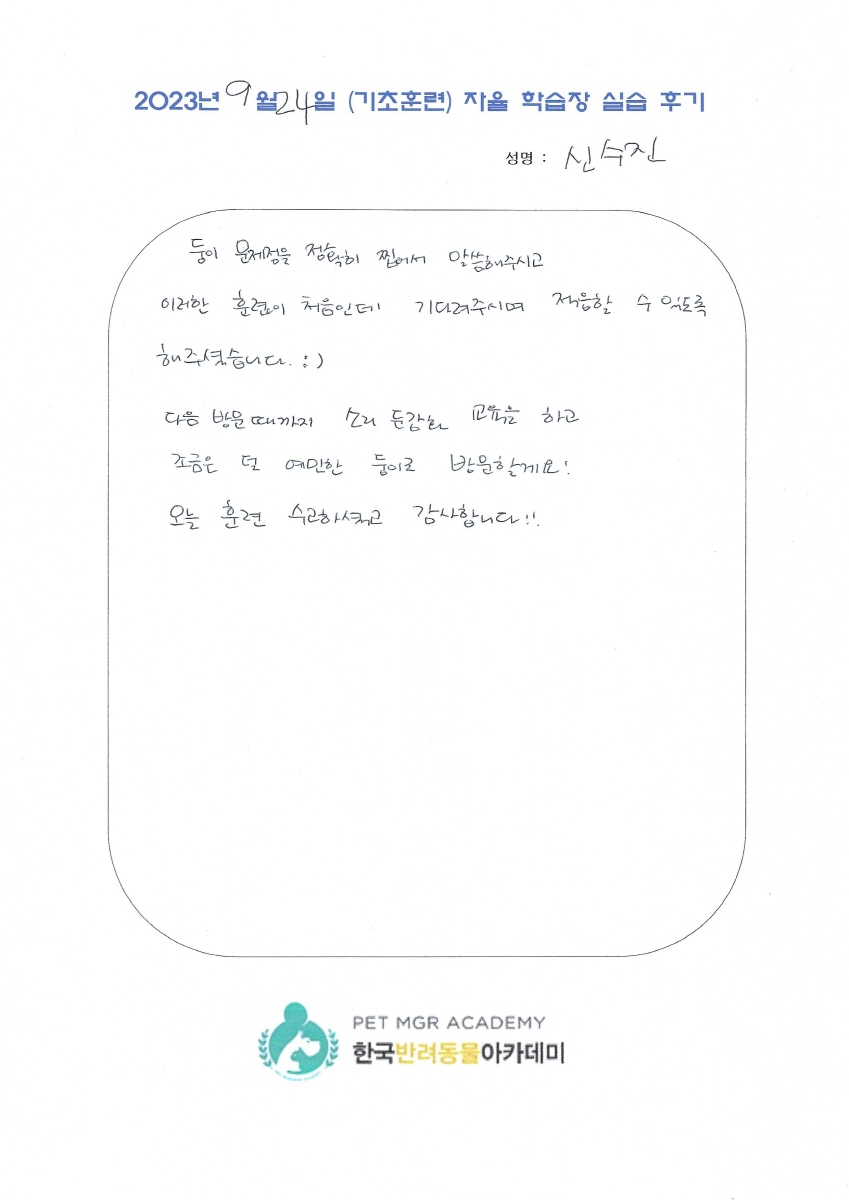 2023년 9월 24일 (기초훈련) 자율 학습장 실습 후기
성명 : 신수진
둥이 문제점을 정확히 찝어서 말씀해주시고
이러한 훈련이 처음인데 기다려주시며 적응할 수 있도록
해주셨습니다. :)
다음 방문때까지 소리 둔감화 교육을 하고
조금은 덜 예민한 둥이로 방문할게요!
오늘 훈련 수고하셨고 감사합니다!!
PET MGR ACADEMY
한국반려동물아카데미